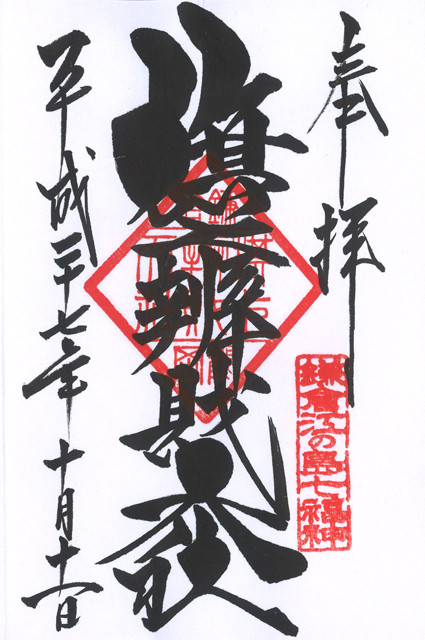 奉拝
鎌倉江の島七福神
旗上辨財天社
平成二十七年十月十一日